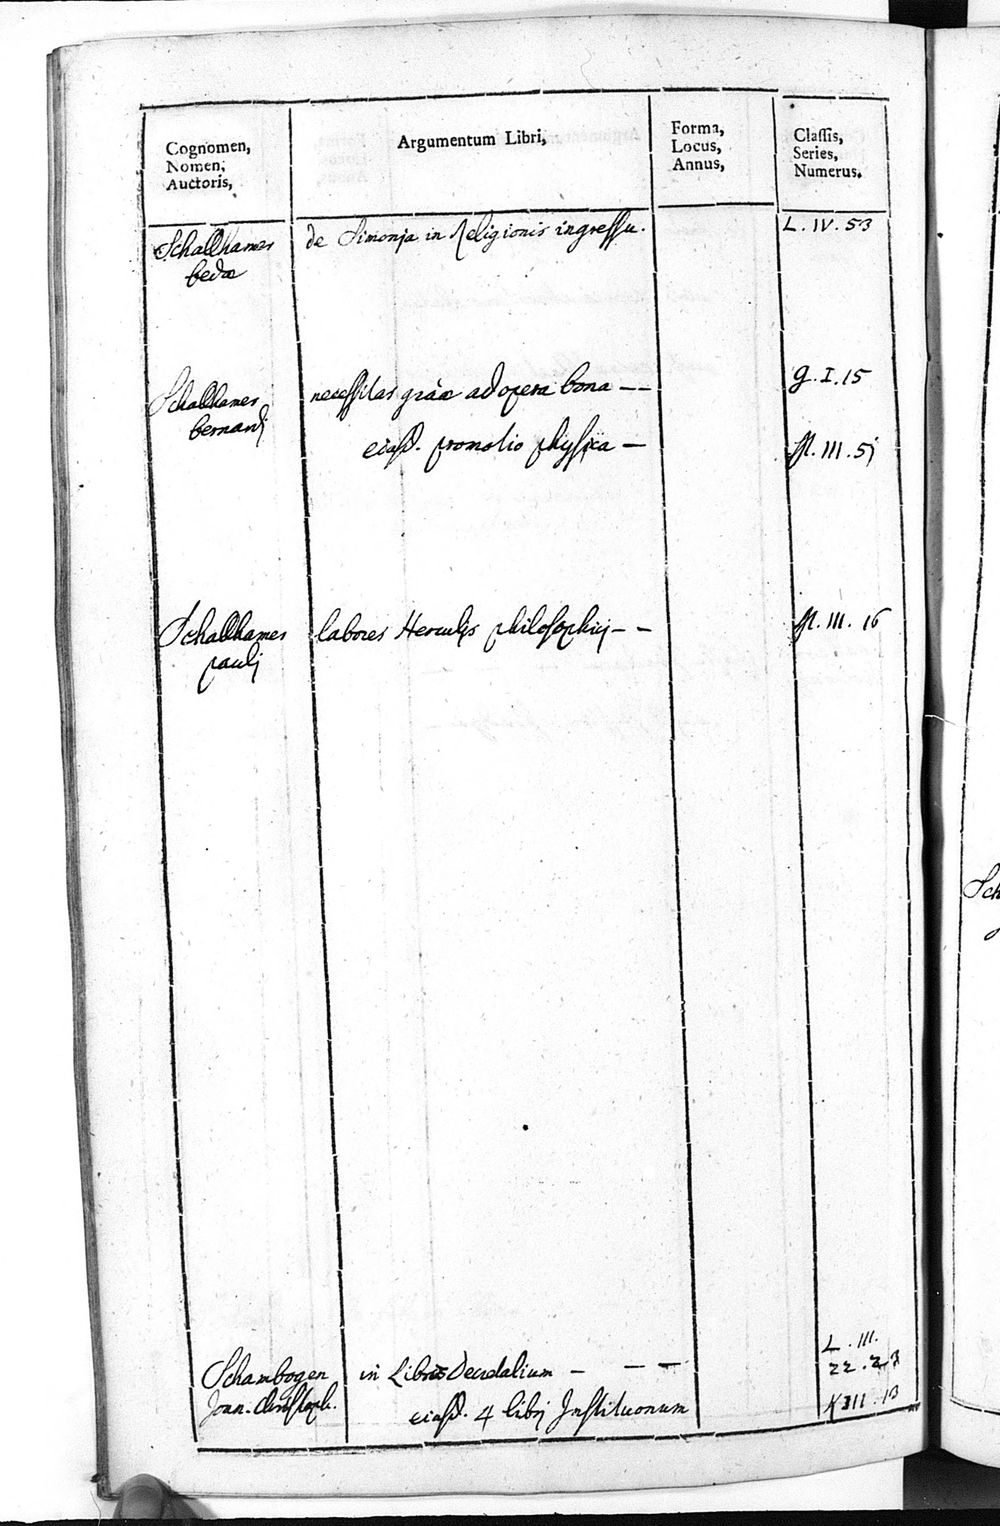 Cognomen,
Nomen,
Auctoris,
Argumentum Libri,
Forma,
Locus,
Annus,
Classis,
Series,
Numerus.
Schallhamer de Simonja in Religionis ingressu. L. IV. 53
bedæ
Schallhamer necessitas grãæ ad opera bona – – g. I. 15
bernardj
eiusd. promotio physica – III. 5j
Schallhamer labores Herculis philosophicj – – III. 16
paulj
L. III.
Schambogen in Libros Decretalium – – – 22. 23
Joan. Christoph. eiusd. 4 librj Institutonum 13
Sch